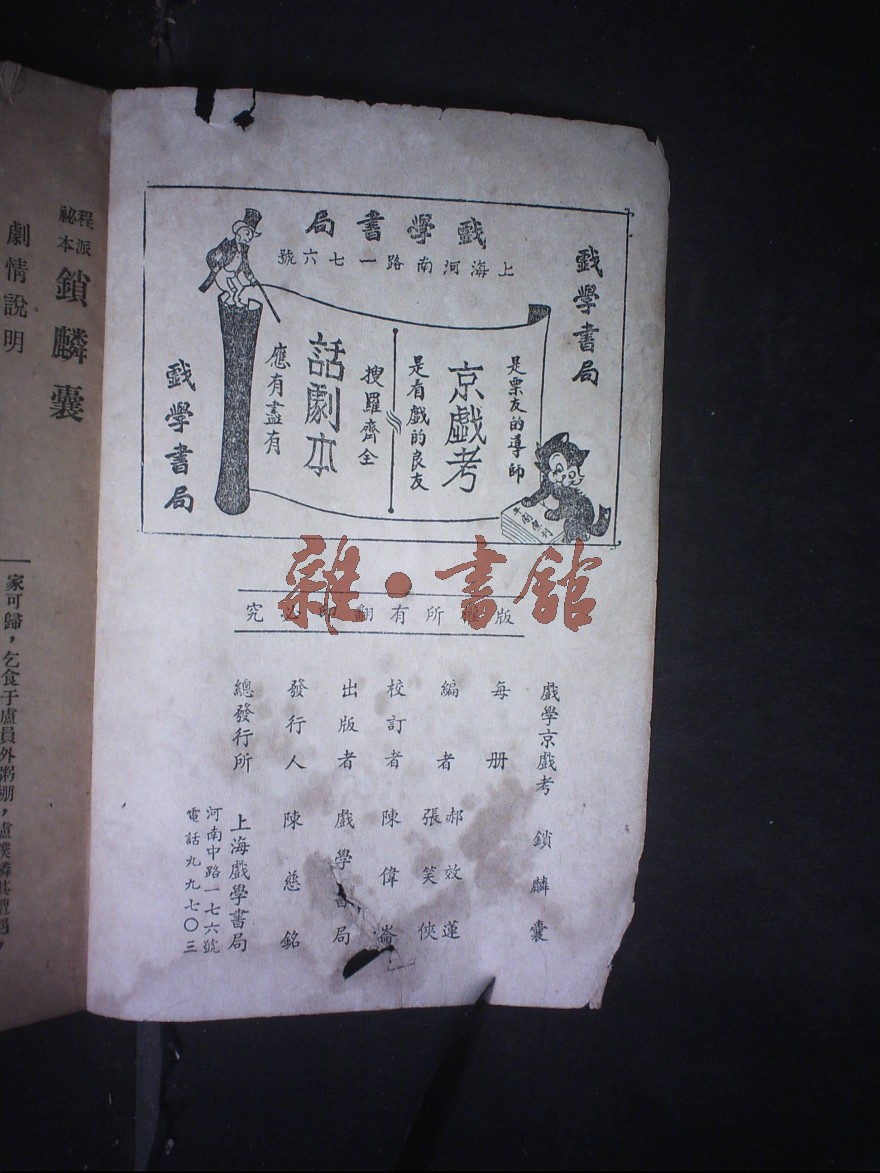 戲學書局
上海河南路一七六號
戲學書局
是票友的導師
京戲考
是看戲的良友
搜羅齊全
話劇本
應有盡有
戲學書局
雜·書館
版權所有翻印必究
戲學京戲考 鎖麟囊
每册
編者 郝效蓮
張笑俠
校訂者 陳偉崙
出版者 戲學書局
發行人 陳慈銘
總發行所 上海戲學書局
河南中路一七六號
電話九九七〇三
程派
祕本
鎖麟囊
劇情說明
家可歸，乞食于盧員外粥棚，盧